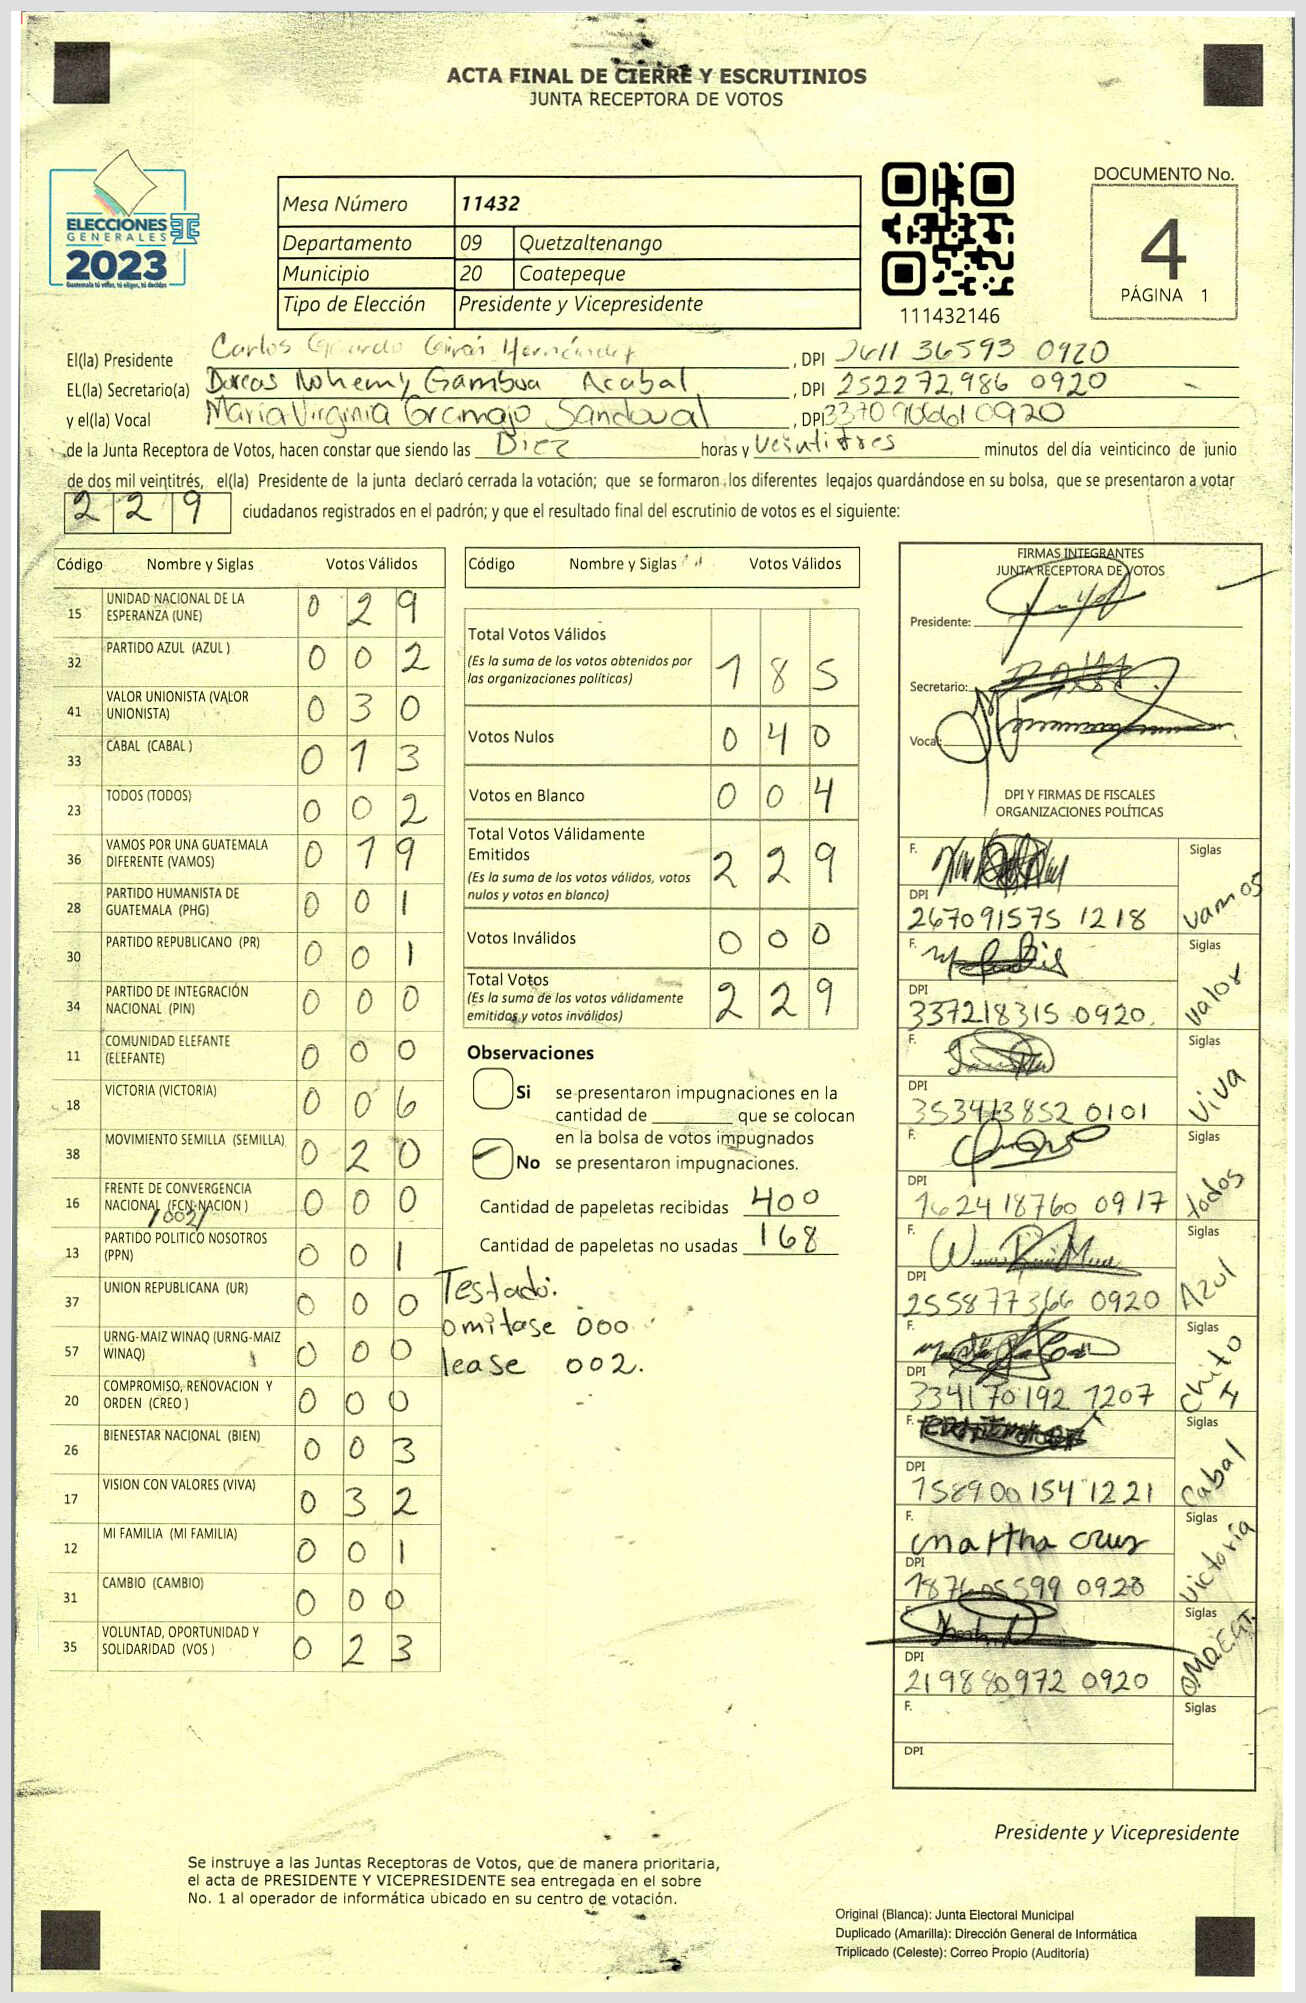 ACTA FINAL DE CIERRE Y ESCRUTINIOS
JUNTA RECEPTORA DE VOTOS
ELECCIONES
GENERALES
2023
Guatemala tú votas, tú eliges, tú decides
Mesa Número 11432
Departamento 09 Quetzaltenango
Municipio 20 Coatepeque
Tipo de Elección Presidente y Vicepresidente
111432146
DOCUMENTO No.
4
PÁGINA 1
El(la) Presidente Carlos Hernández, DPI 2611 36593 0920
EL(la) Secretario(a) Dorcas Nohemy Gamboa Acabal, DPI 252272986 0920
y el(la) Vocal María Virginia Gramajo Sandoval, DPI 0920
de la Junta Receptora de Votos, hacen constar que siendo las Diez horas y Veintitres minutos del día veinticinco de junio
de dos mil veintitrés, el(la) Presidente de la junta declaró cerrada la votación; que se formaron los diferentes legajos guardándose en su bolsa, que se presentaron a votar
229 ciudadanos registrados en el padrón; y que el resultado final del escrutinio de votos es el siguiente:
Código Nombre y Siglas Votos Válidos
15 UNIDAD NACIONAL DE LA ESPERANZA (UNE) 029
32 PARTIDO AZUL (AZUL ) 002
41 VALOR UNIONISTA (VALOR UNIONISTA) 030
33 CABAL (CABAL ) 013
23 TODOS (TODOS) 002
36 VAMOS POR UNA GUATEMALA DIFERENTE (VAMOS) 019
28 PARTIDO HUMANISTA DE GUATEMALA (PHG) 001
30 PARTIDO REPUBLICANO (PR) 001
34 PARTIDO DE INTEGRACIÓN NACIONAL (PIN) 000
11 COMUNIDAD ELEFANTE (ELEFANTE) 000
18 VICTORIA (VICTORIA) 006
38 MOVIMIENTO SEMILLA (SEMILLA) 020
16 FRENTE DE CONVERGENCIA NACIONAL (FCN-NACION ) 000
/002/
13 PARTIDO POLITICO NOSOTROS (PPN) 001
37 UNION REPUBLICANA (UR) 000
57 URNG-MAIZ WINAQ (URNG-MAIZ WINAQ) 000
20 COMPROMISO, RENOVACION Y ORDEN (CREO ) 000
26 BIENESTAR NACIONAL (BIEN) 003
17 VISION CON VALORES (VIVA) 032
12 MI FAMILIA (MI FAMILIA) 001
31 CAMBIO (CAMBIO) 000
35 VOLUNTAD, OPORTUNIDAD Y SOLIDARIDAD (VOS ) 023
Código Nombre y Siglas Votos Válidos
Total Votos Válidos 185
(Es la suma de los votos obtenidos por
las organizaciones políticas)
Votos Nulos 040
Votos en Blanco 004
Total Votos Válidamente
Emitidos 229
(Es la suma de los votos válidos, votos
nulos y votos en blanco)
Votos Inválidos 000
Total Votos 229
(Es la suma de los votos válidamente
emitidos y votos inválidos)
Observaciones
Si se presentaron impugnaciones en la
cantidad de que se colocan
en la bolsa de votos impugnados
No se presentaron impugnaciones.
Cantidad de papeletas recibidas 400
Cantidad de papeletas no usadas 168
Testado:
omitase 000
lease 002.
FIRMAS INTEGRANTES
JUNTA RECEPTORA DE VOTOS
Presidente:
Secretario:
Vocal:
DPI Y FIRMAS DE FISCALES
ORGANIZACIONES POLÍTICAS
F. Siglas vamos
DPI 267091575 1218
F. Siglas valor
DPI 337218315 0920
F. Siglas viva
DPI 353413852 0101
F. Siglas todos
DPI 162418760 0917
F. Siglas Azul
DPI 255877366 0920
F. Siglas
DPI 334170192 1207
F. Siglas Cabal
DPI 158900154 1221
F. martha cruz Siglas victoria
DPI 187605599 0920
F. Siglas
DPI 219880972 0920
F. Siglas
DPI
Presidente y Vicepresidente
Se instruye a las Juntas Receptoras de Votos, que de manera prioritaria,
el acta de PRESIDENTE Y VICEPRESIDENTE sea entregada en el sobre
No. 1 al operador de informática ubicado en su centro de votación.
Original (Blanca): Junta Electoral Municipal
Duplicado (Amarilla): Dirección General de Informática
Triplicado (Celeste): Correo Propio (Auditoría)